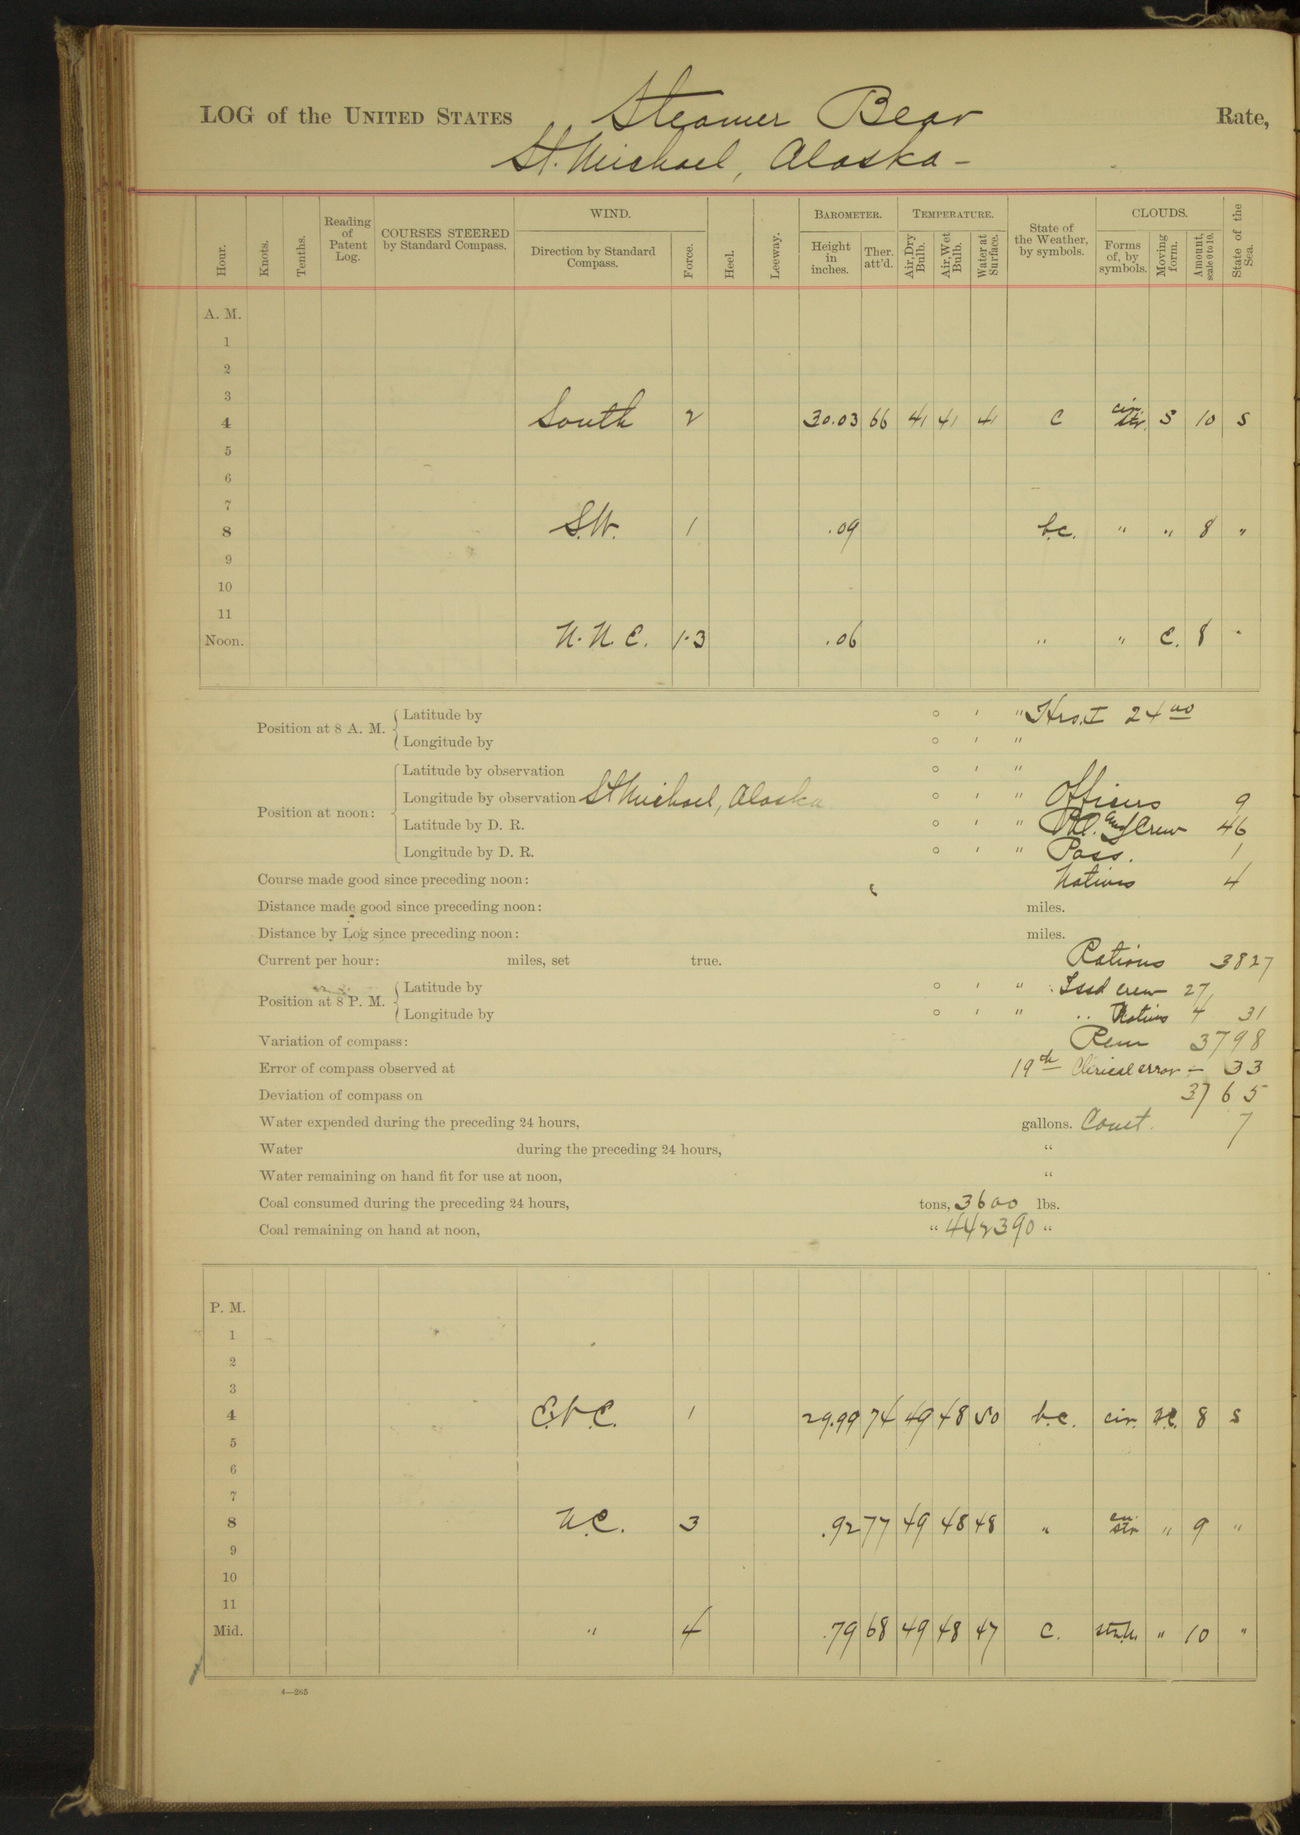 LOG of the UNITED STATES Steamer Bear Rate,
St. Michael, Alaska -
Hour. Knots. Tenths. Reading of Patent Log. COURSES STEERED by Standard Compass. WIND. Direction by Standard Compass. Force. Heel. Leeway. BAROMETER. Height in inches. Ther. att'd. TEMPERATURE. Air, Dry Bulb. Air, Wet Bulb. Water at Surface. State of the Weather, by symbols. CLOUDS. Forms of, by symbols. Moving form. Amount, scale 0 to 10. State of the Sea.
A. M.
1
2
3
4 South 2 30.03 66 41 41 41 C cir. str. S 10 S
5
6
7
8 S.W. 1 .09 b.c. " " 8 "
9
10
11
Noon. N.N.E. 1-3 .06 " " E. 8 "
Position at 8 A. M. { Latitude by ° ' " 24 00
Longitude by ° ' "
Position at noon: { Latitude by observation ° ' "
Longitude by observation St Michael, Alaska ° ' " Officers 9
Latitude by D. R. ° ' " and Crew 46
Longitude by D. R. ° ' " Pass. 1
Course made good since preceding noon: Natives 4
Distance made good since preceding noon: miles.
Distance by Log since preceding noon: miles.
Current per hour: miles, set true. Rations 3827
Position at 8 P. M. { Latitude by ° ' " Issd crew 27
Longitude by ° ' " " Natives 4 31
Variation of compass: Rem 3798
Error of compass observed at 19th Clerical error - 33
Deviation of compass on 3765
Water expended during the preceding 24 hours, gallons. 7
Water during the preceding 24 hours, "
Water remaining on hand fit for use at noon, "
Coal consumed during the preceding 24 hours, tons, 3600 lbs.
Coal remaining on hand at noon, " 442390 "
P. M.
1
2
3
4 E.N.E. 1 29.99 74 49 48 50 b.c. cir. N.E. 8 S
5
6
7
8 N.E. 3 .92 77 49 48 48 " str " 9 "
9
10
11
Mid. " 4 .79 68 49 48 47 C. " 10 "
4—265